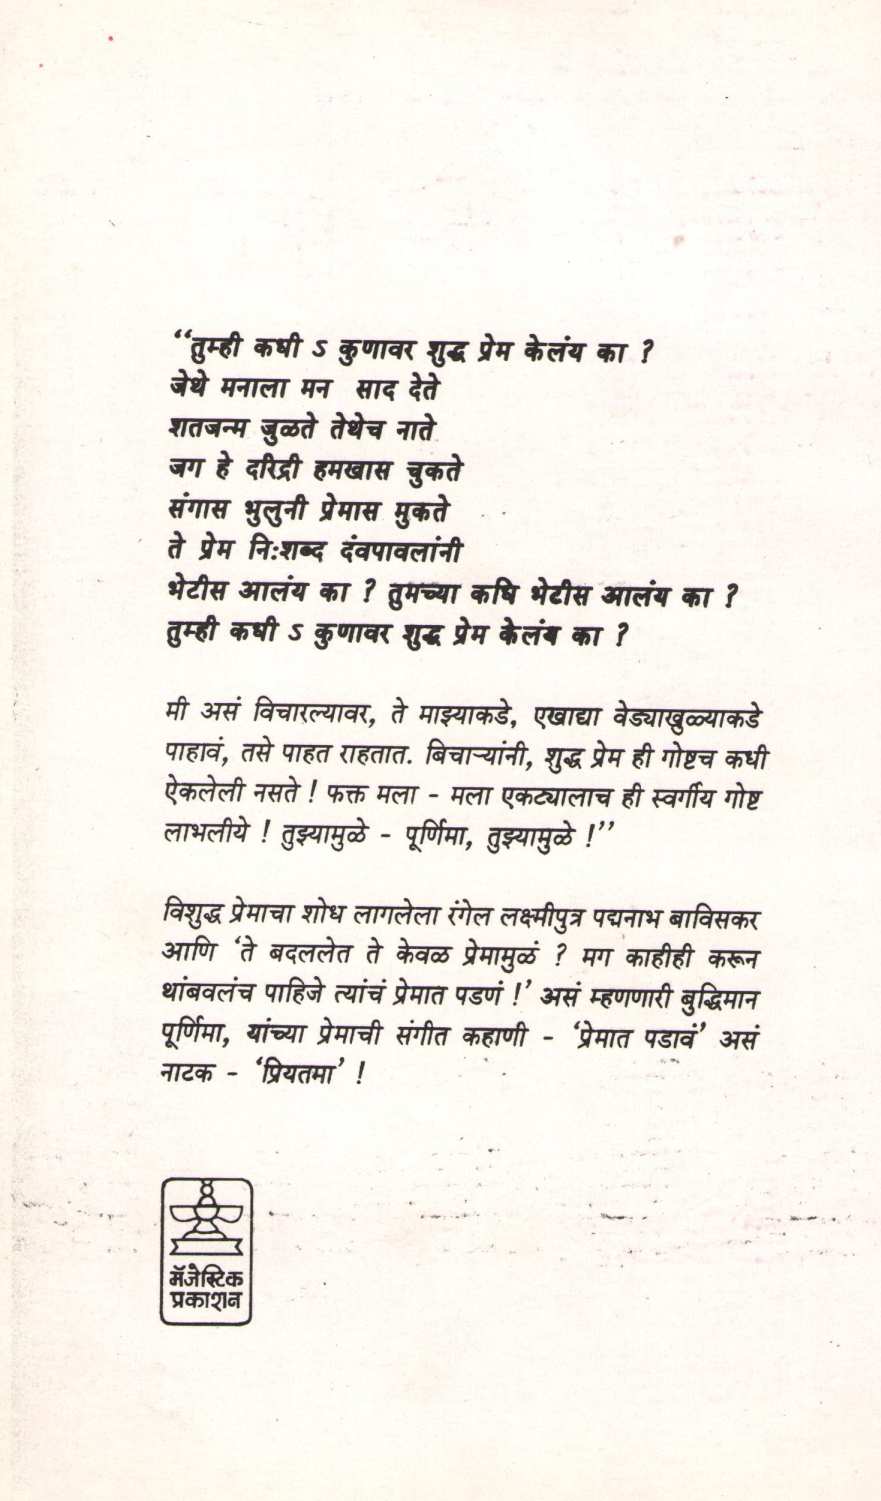 “तुम्ही कधी ऽ कुणावर शुद्ध प्रेम केलंय का ?
जेथे मनाला मन साद देते
शतजन्म जुळते तेथेच नाते
जग हे दरिद्री हमखास चुकते
संगास भुलुनी प्रेमास मुकते
ते प्रेम निःशब्द दंवपावलांनी
भेटीस आलंय का ? तुमच्या कधि भेटीस आलंय का ?
तुम्ही कधी ऽ कुणावर शुद्ध प्रेम केलंय का ?
मी असं विचारल्यावर, ते माझ्याकडे, एखाद्या वेड्याखुळ्याकडे
पाहावं, तसे पाहत राहतात. बिचाऱ्यांनी, शुद्ध प्रेम ही गोष्टच कधी
ऐकलेली नसते ! फक्त मला - मला एकट्यालाच ही स्वर्गीय गोष्ट
लाभलीये ! तुझ्यामुळे - पूर्णिमा, तुझ्यामुळे !”
विशुद्ध प्रेमाचा शोध लागलेला रंगेल लक्ष्मीपुत्र पद्मनाभ बाविसकर
आणि ‘ते बदललेत ते केवळ प्रेमामुळं ? मग काहीही करून
थांबवलंच पाहिजे त्यांचं प्रेमात पडणं !’ असं म्हणणारी बुद्धिमान
पूर्णिमा, यांच्या प्रेमाची संगीत कहाणी - ‘प्रेमात पडावं’ असं
नाटक - ‘प्रियतमा’ !
मॅजेस्टिक
प्रकाशन